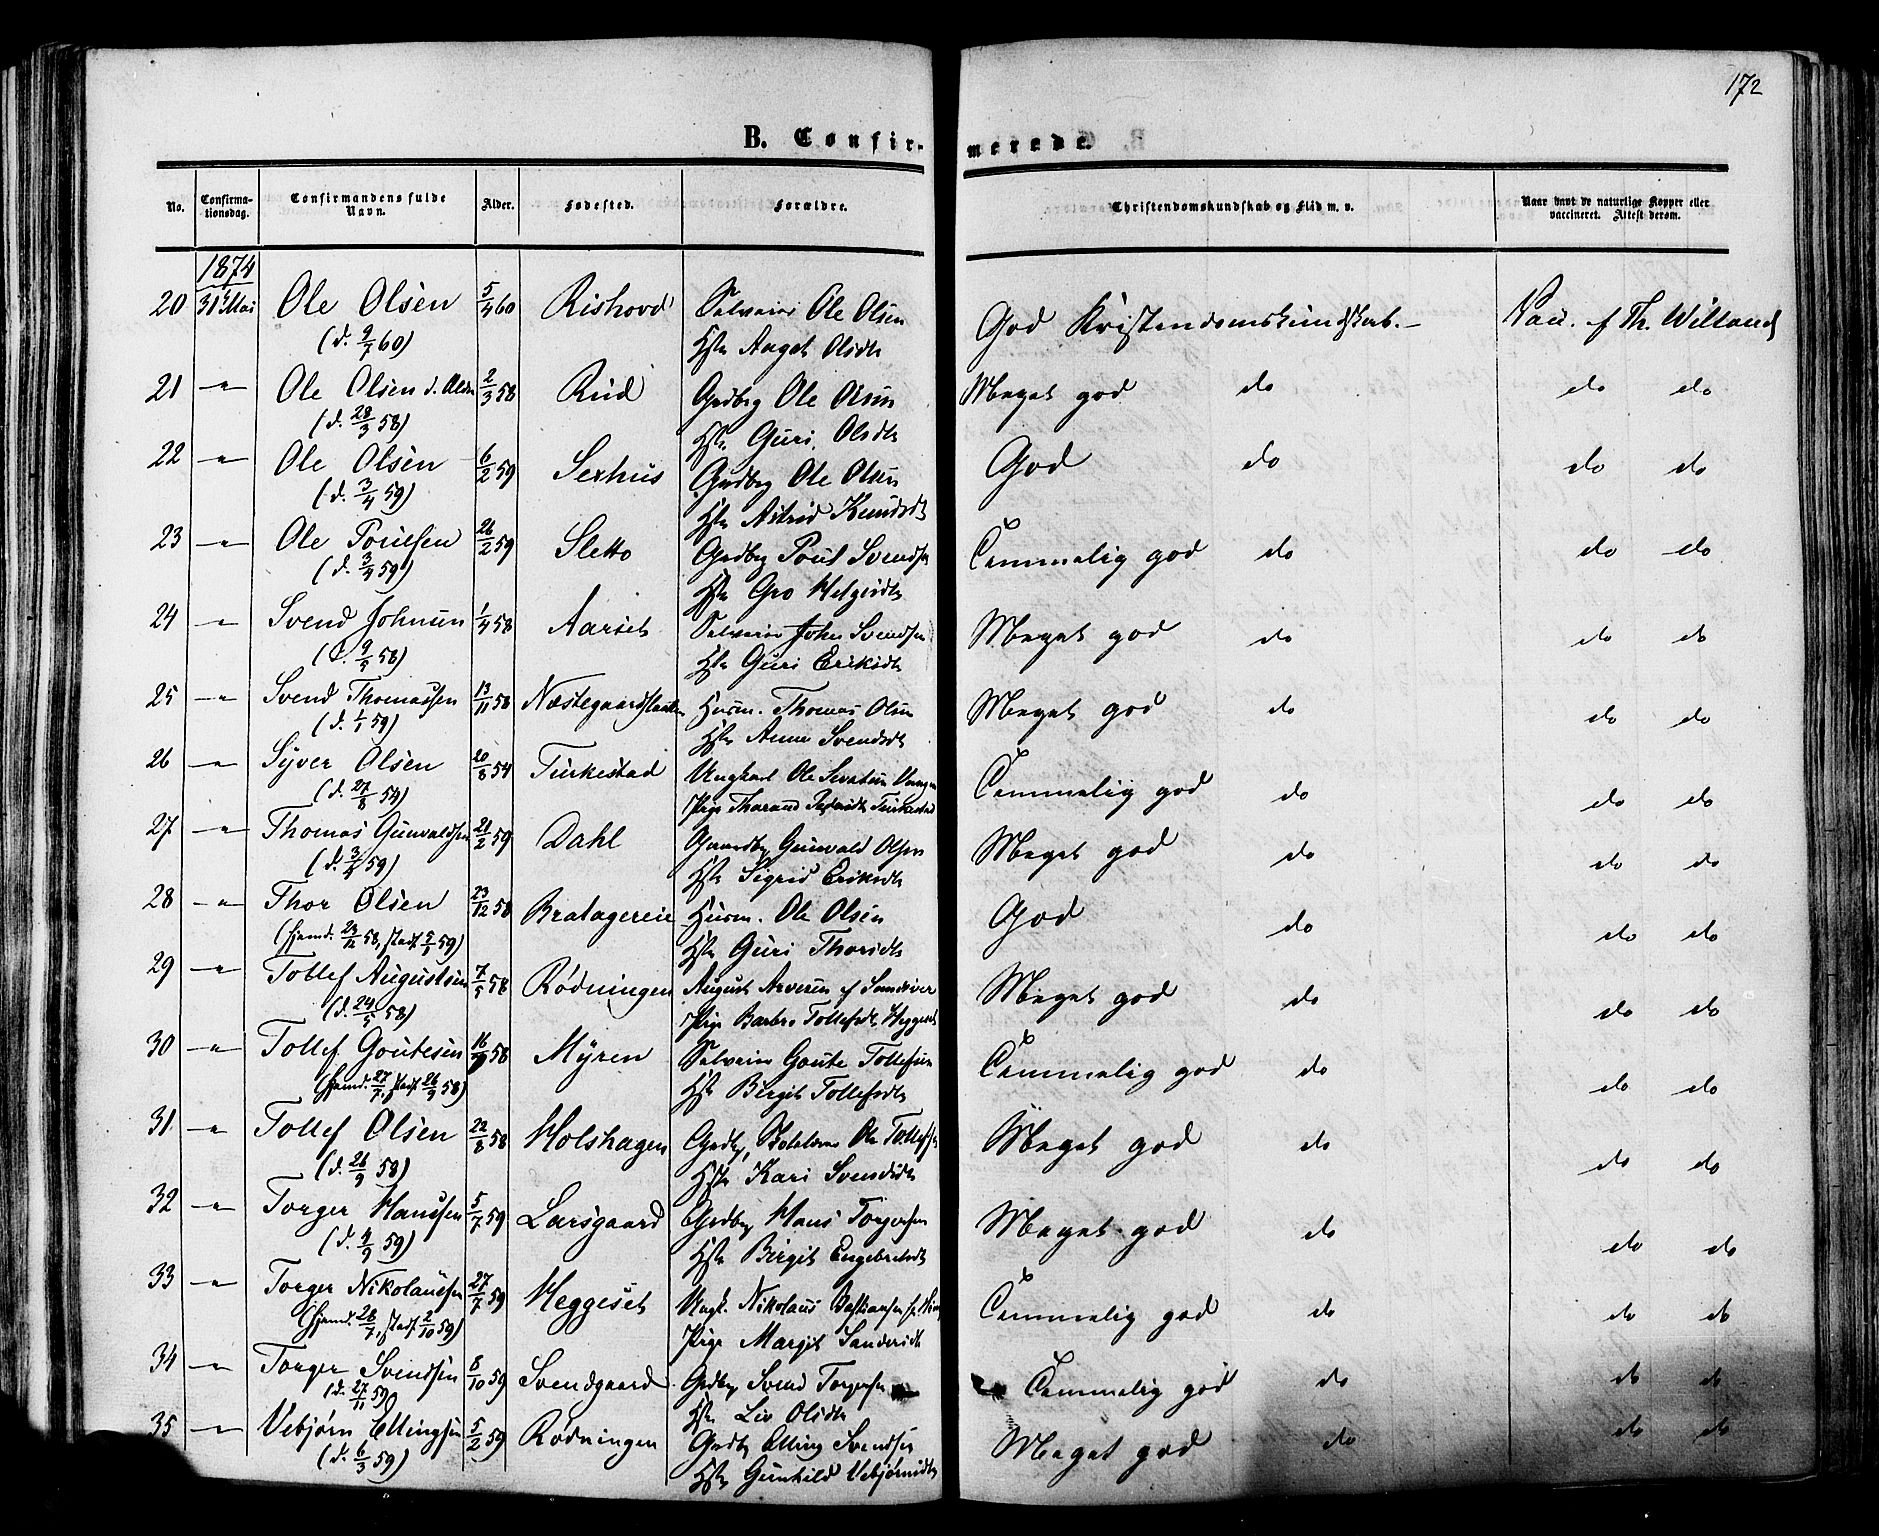 172
B. Confirmerede.
No. Confirmationsdag. Confirmandens fulde Navn. Alder. Fødested. Forældre. Christendomskundskab og Flid m. v. Naar havt de naturlige Kopper eller vaccineret. Attest derom.
1874
20 31 Mai Ole Olsen 5/4 60 Rishovd Selveier Ole Olsen God Kristendomskundskab.- Vac. af Th. Willand
(d. 9/7 60) Hst. Aagot Olsdtr
21 -"- Ole Olsen d. Ældre 2/3 58 Rud Grdbrg Ole Olsen Meget god do do do
(d. 28/3 58) Hst. Guri Olsdtr
22 -"- Ole Olsen 6/2 59 Sexhus Grdbrg Ole Olsen God do do do
(d. 3/4 59) Hst Astrid Knudsdtr
23 -"- Ole Poulsen 26/2 59 Sletto Grdbrg Poul Svendsen Temmelig god do do do
(d. 3/4 59) Hst Gro Helgesdtr
24 -"- Svend Johnsen 1/4 58 Aarset Selveier John Svendsen Meget god do do do
(d. 9/5 58) Hst Guri Eriksdtr
25 -"- Svend Thomassen 13/11 58 Næstegaardsbakken Husm. Thomas Olsen Meget god do do do
(d. 1/1 59) Hst Anne Svendsdtr
26 -"- Syver Olsen 20/8 54 Turkestad Ungkarl Ole Temmelig god do do do
(d. 27/8 54) Pige Turkestad
27 -"- Thomas Gunvaldsen 21/2 59 Dahl Gaardbrg Gunvald Olsen Meget god do do do
(d. 3/4 59) Hst Sigrid Eriksdtr
28 -"- Thor Olsen 23/12 58 Bratagereie Husm. Ole Olsen God do do do
(hjemd. 29/12 58, stadf. 5/1 59) Hst Guri Thorsdtr
29 -"- Tollef Augustsen 7/5 58 Rødningen August Arvesen af Sandsver Meget god do do do
(d. 24/5 58) Pige Barbro Tollefsdtr Heggeset
30 -"- Tollef Goutesen 16/7 58 Myren Selveier Goute Tollefsen Temmelig god do do do
(hjemd. 27/7, stadf. 26/9 58) Hst Birgit Tollefsdtr
31. -"- Tollef Olsen 22/8 58 Holshagen Grdbr, Skolelærer Ole Tollefsen Meget god do do do
(d. 26/9 58) Hst Kari Svendsdtr
32 -"- Torger Hansen 5/7 59 Larsgaard Grdbrg Hans Torgersen Meget god do do do
(d. 4/9 59) Hst Birgit Engebretsdtr
33 -"- Torger Nikolaussen 27/7 59 Heggeset Ungk. Nikolaus Bastiansen Temmelig god do do do
(hjemd. 28/7, stadf. 2/10 59) Pige Margit Sandersdtr
34 -"- Torger Svendsen 8/10 59 Svendgaard Grdbrg Svend Torgersen Temmelig god do do do
(d. 27/11 59) Hst Liv Olsdtr
35 -"- Vebjørn Ellingsen 5/2 59 Rødningen Grdbr Elling Svendsen Meget god do do do
(d. 6/3 59) Hst Gunhild Vebjørnsdtr